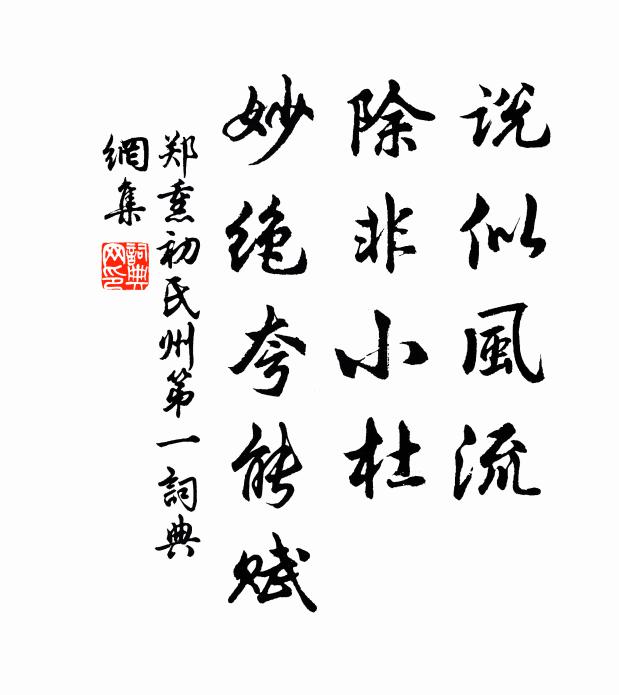 说似風流
除非小杜
妙绝夸能赋
郑熏初氏州第一詞典
網集
詞典
网印